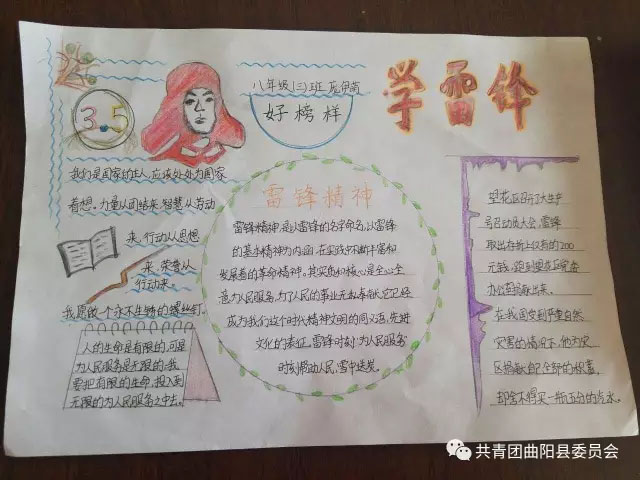 学雷锋
八年级(三)班
好榜样
3.5
我们是国家的主人,应该处处为国家
着想。力量从团结来,智慧从劳动
来,行动从思想
来,荣誉从
行动来。
我愿做一个永不生锈的螺丝钉。
人的生命是有限的,可是
为人民服务是无限的,我
要把有限的生命,投入到
无限的为人民服务之中去。
雷锋精神
雷锋精神,是以雷锋的名字命名,以雷锋
的基本精神为内涵,在实践中不断丰富和
发展着的革命精神。其实质和核心是全心全
意为人民服务,为了人民的事业无私奉献,它已经
成为我们这个时代精神文明的同义语,先进
文化的表征。雷锋时刻为人民服务
时刻帮助人民,雪中送炭。
望花区召开了大生产
号召动员大会,雷锋
取出存折上仅有的200
元钱,跑到望花区党委
办公室捐献出来。
在我国受到严重自然
灾害的情况下,他为灾
区捐献自己全部的积蓄,
却舍不得买一瓶五分的汽水。
共青团曲阳县委员会